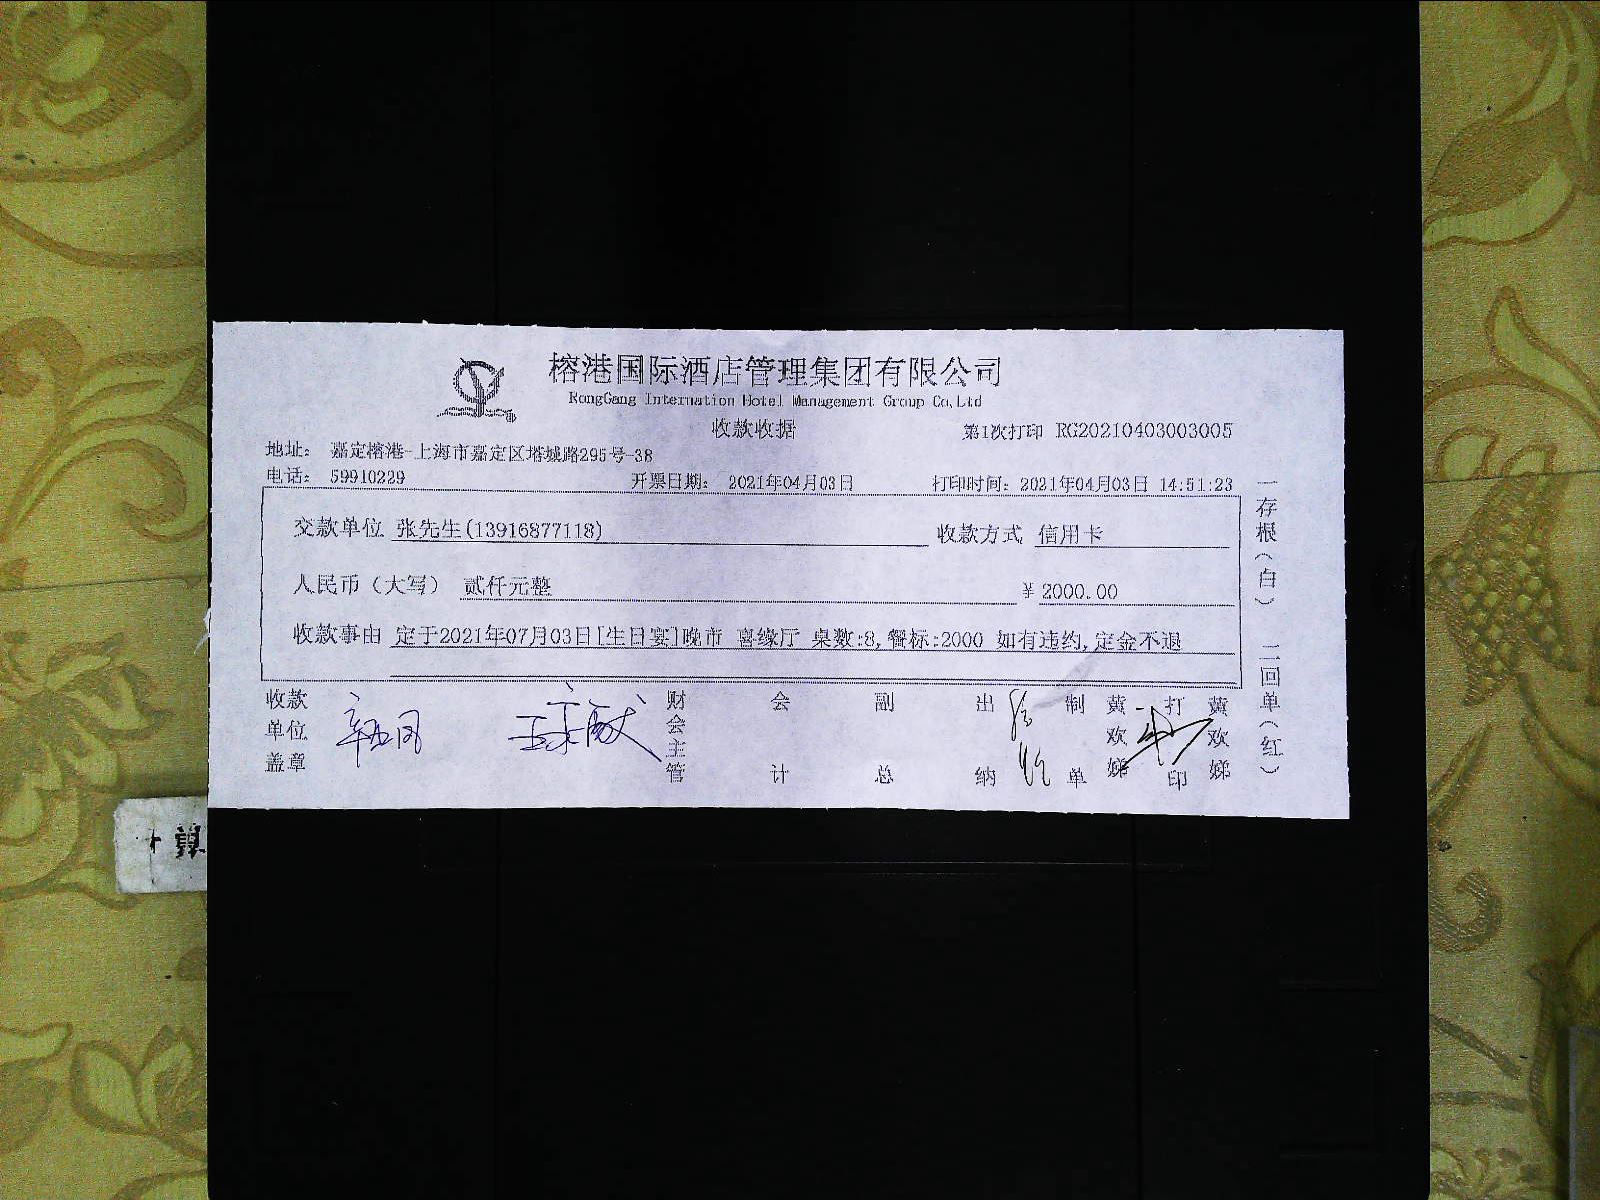 榕港国际酒店管理集团有限公司
RongGang Internation Hotel Management Group Co,Ltd
收款收据
第1次打印 RG20210403003005
地址： 嘉定榕港-上海市嘉定区塔城路295号-38
电话： 59910229 开票日期： 2021年04月03日 打印时间：2021年04月03日 14:51:23
交款单位 张先生(13916877118) 收款方式 信用卡
人民币（大写） 贰仟元整 ¥ 2000.00
收款事由 定于2021年07月03日[生日宴]晚市 喜缘厅 桌数:8,餐标:2000 如有违约,定金不退
收款单位盖章 财会主管 会计 副总 出纳 制单 黄欢娣 打印 黄欢娣
一存根（白） 二回单（红）